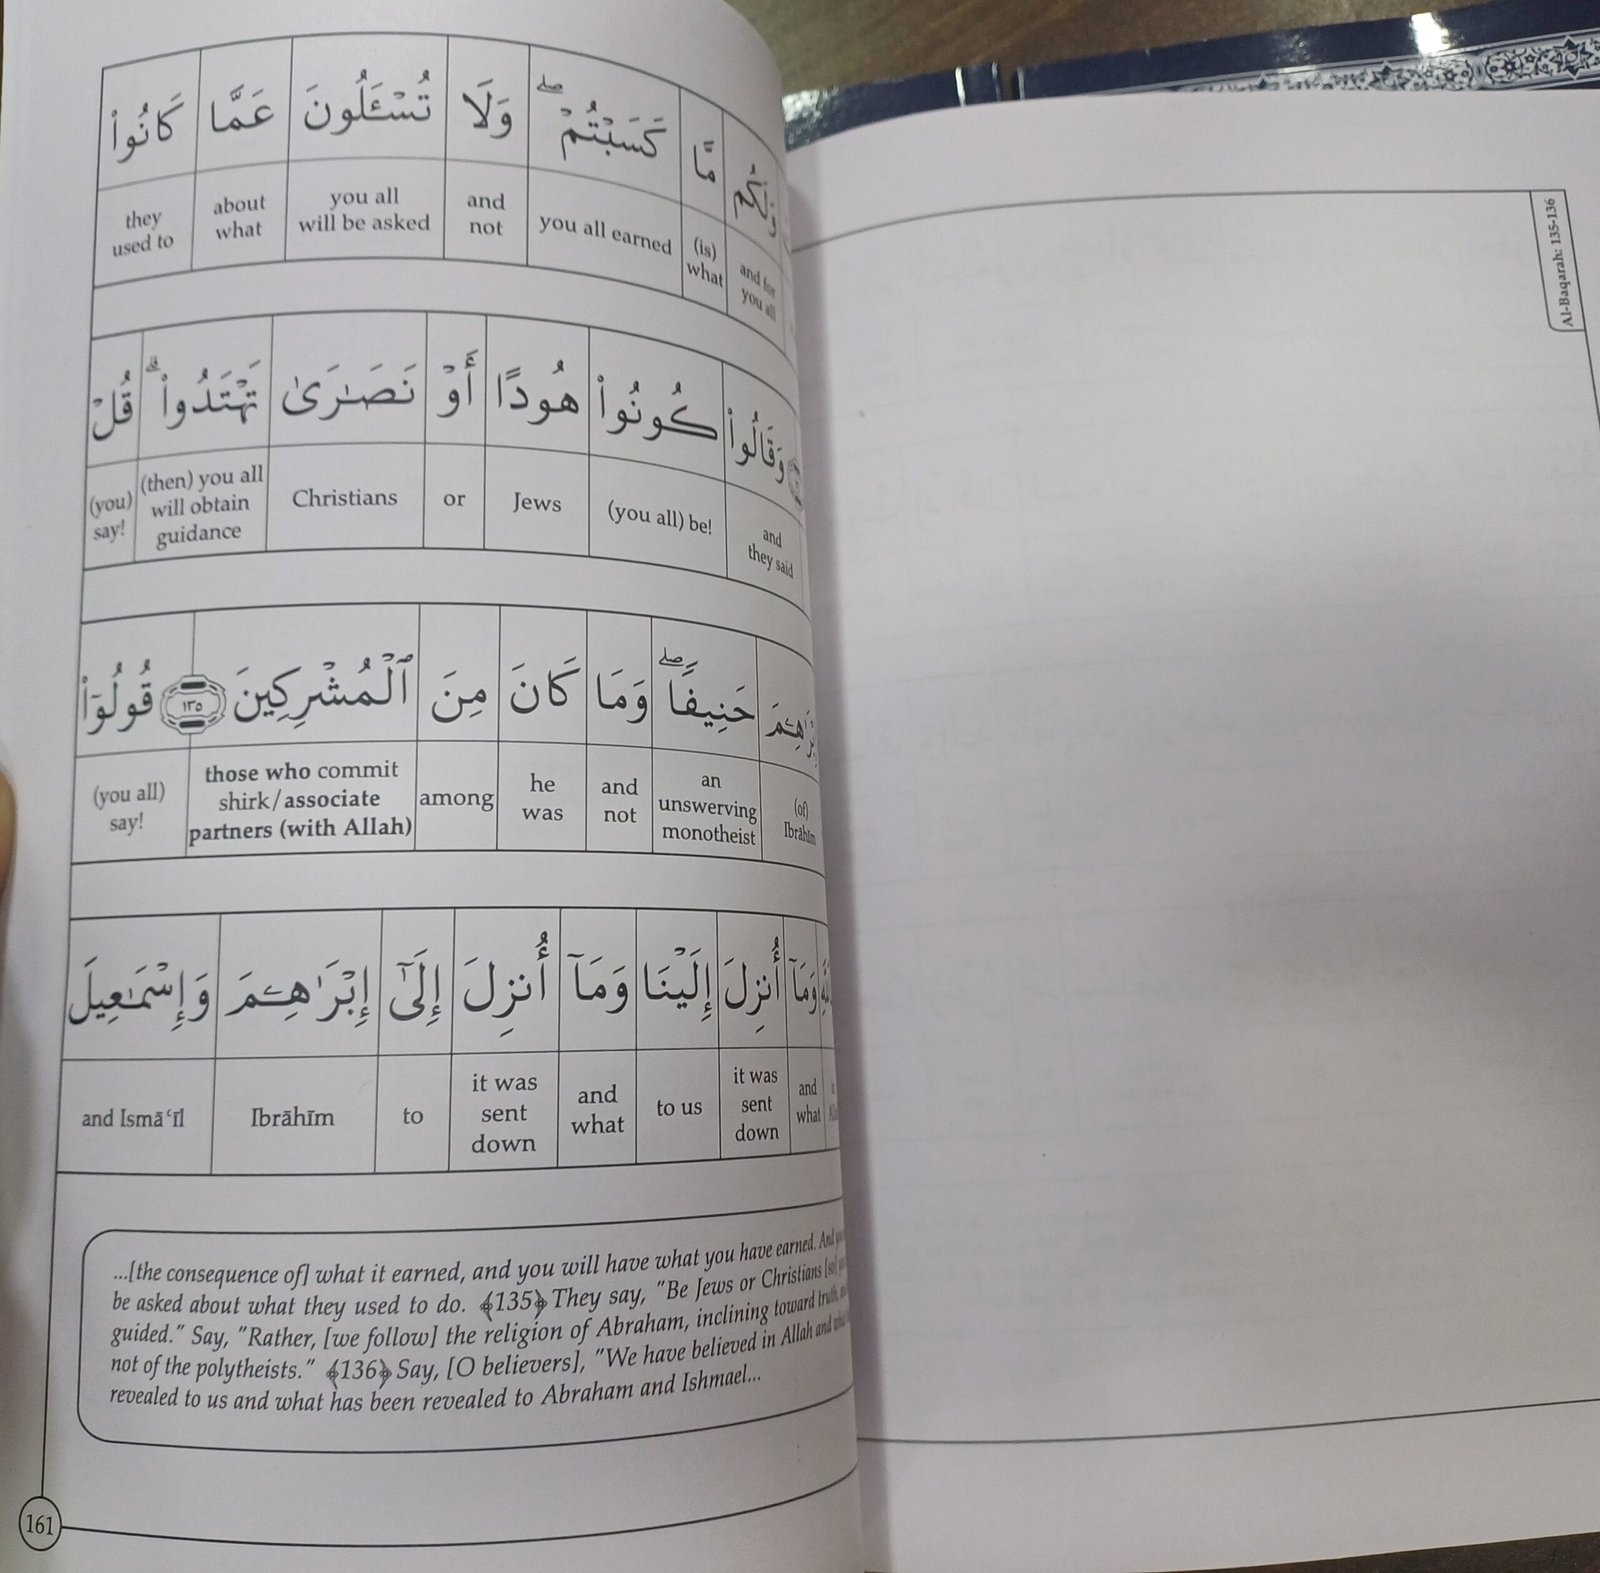 وَلَكُم مَّا كَسَبْتُمْ ۖ وَلَا تُسْـَٔلُونَ عَمَّا كَانُوا۟
and for you all (is) what you all earned and not you all will be asked about what they used to
وَقَالُوا۟ كُونُوا۟ هُودًا أَوْ نَصَـٰرَىٰ تَهْتَدُوا۟ ۗ قُلْ
and they said (you all) be! Jews or Christians (then) you all will obtain guidance (you) say!
حَنِيفًا ۖ وَمَا كَانَ مِنَ ٱلْمُشْرِكِينَ ١٣٥ قُولُوٓا۟
(of) Ibrāhīm an unswerving monotheist and not he was among those who commit shirk/associate partners (with Allah) (you all) say!
وَمَآ أُنزِلَ إِلَيْنَا وَمَآ أُنزِلَ إِلَىٰٓ إِبْرَٰهِـۧمَ وَإِسْمَـٰعِيلَ
and what it was sent down to us and what it was sent down to Ibrāhīm and Ismāʿīl
...[the consequence of] what it earned, and you will have what you have earned. And
be asked about what they used to do. ﴾135﴿ They say, "Be Jews or Christians [so]
guided." Say, "Rather, [we follow] the religion of Abraham, inclining toward truth,
not of the polytheists." ﴾136﴿ Say, [O believers], "We have believed in Allah and
revealed to us and what has been revealed to Abraham and Ishmael...
161
Al-Baqarah: 135-136